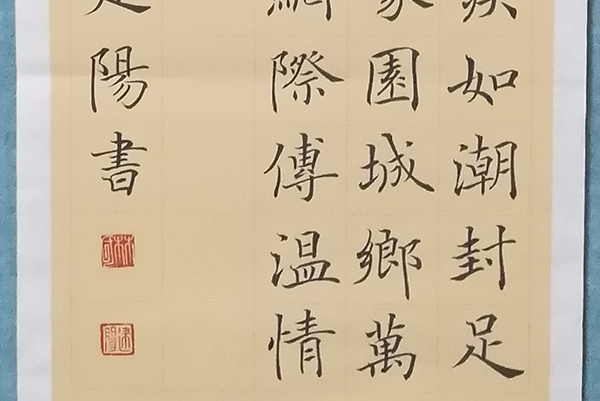 如潮封足
家園城鄉萬
網際傳温情
陽書